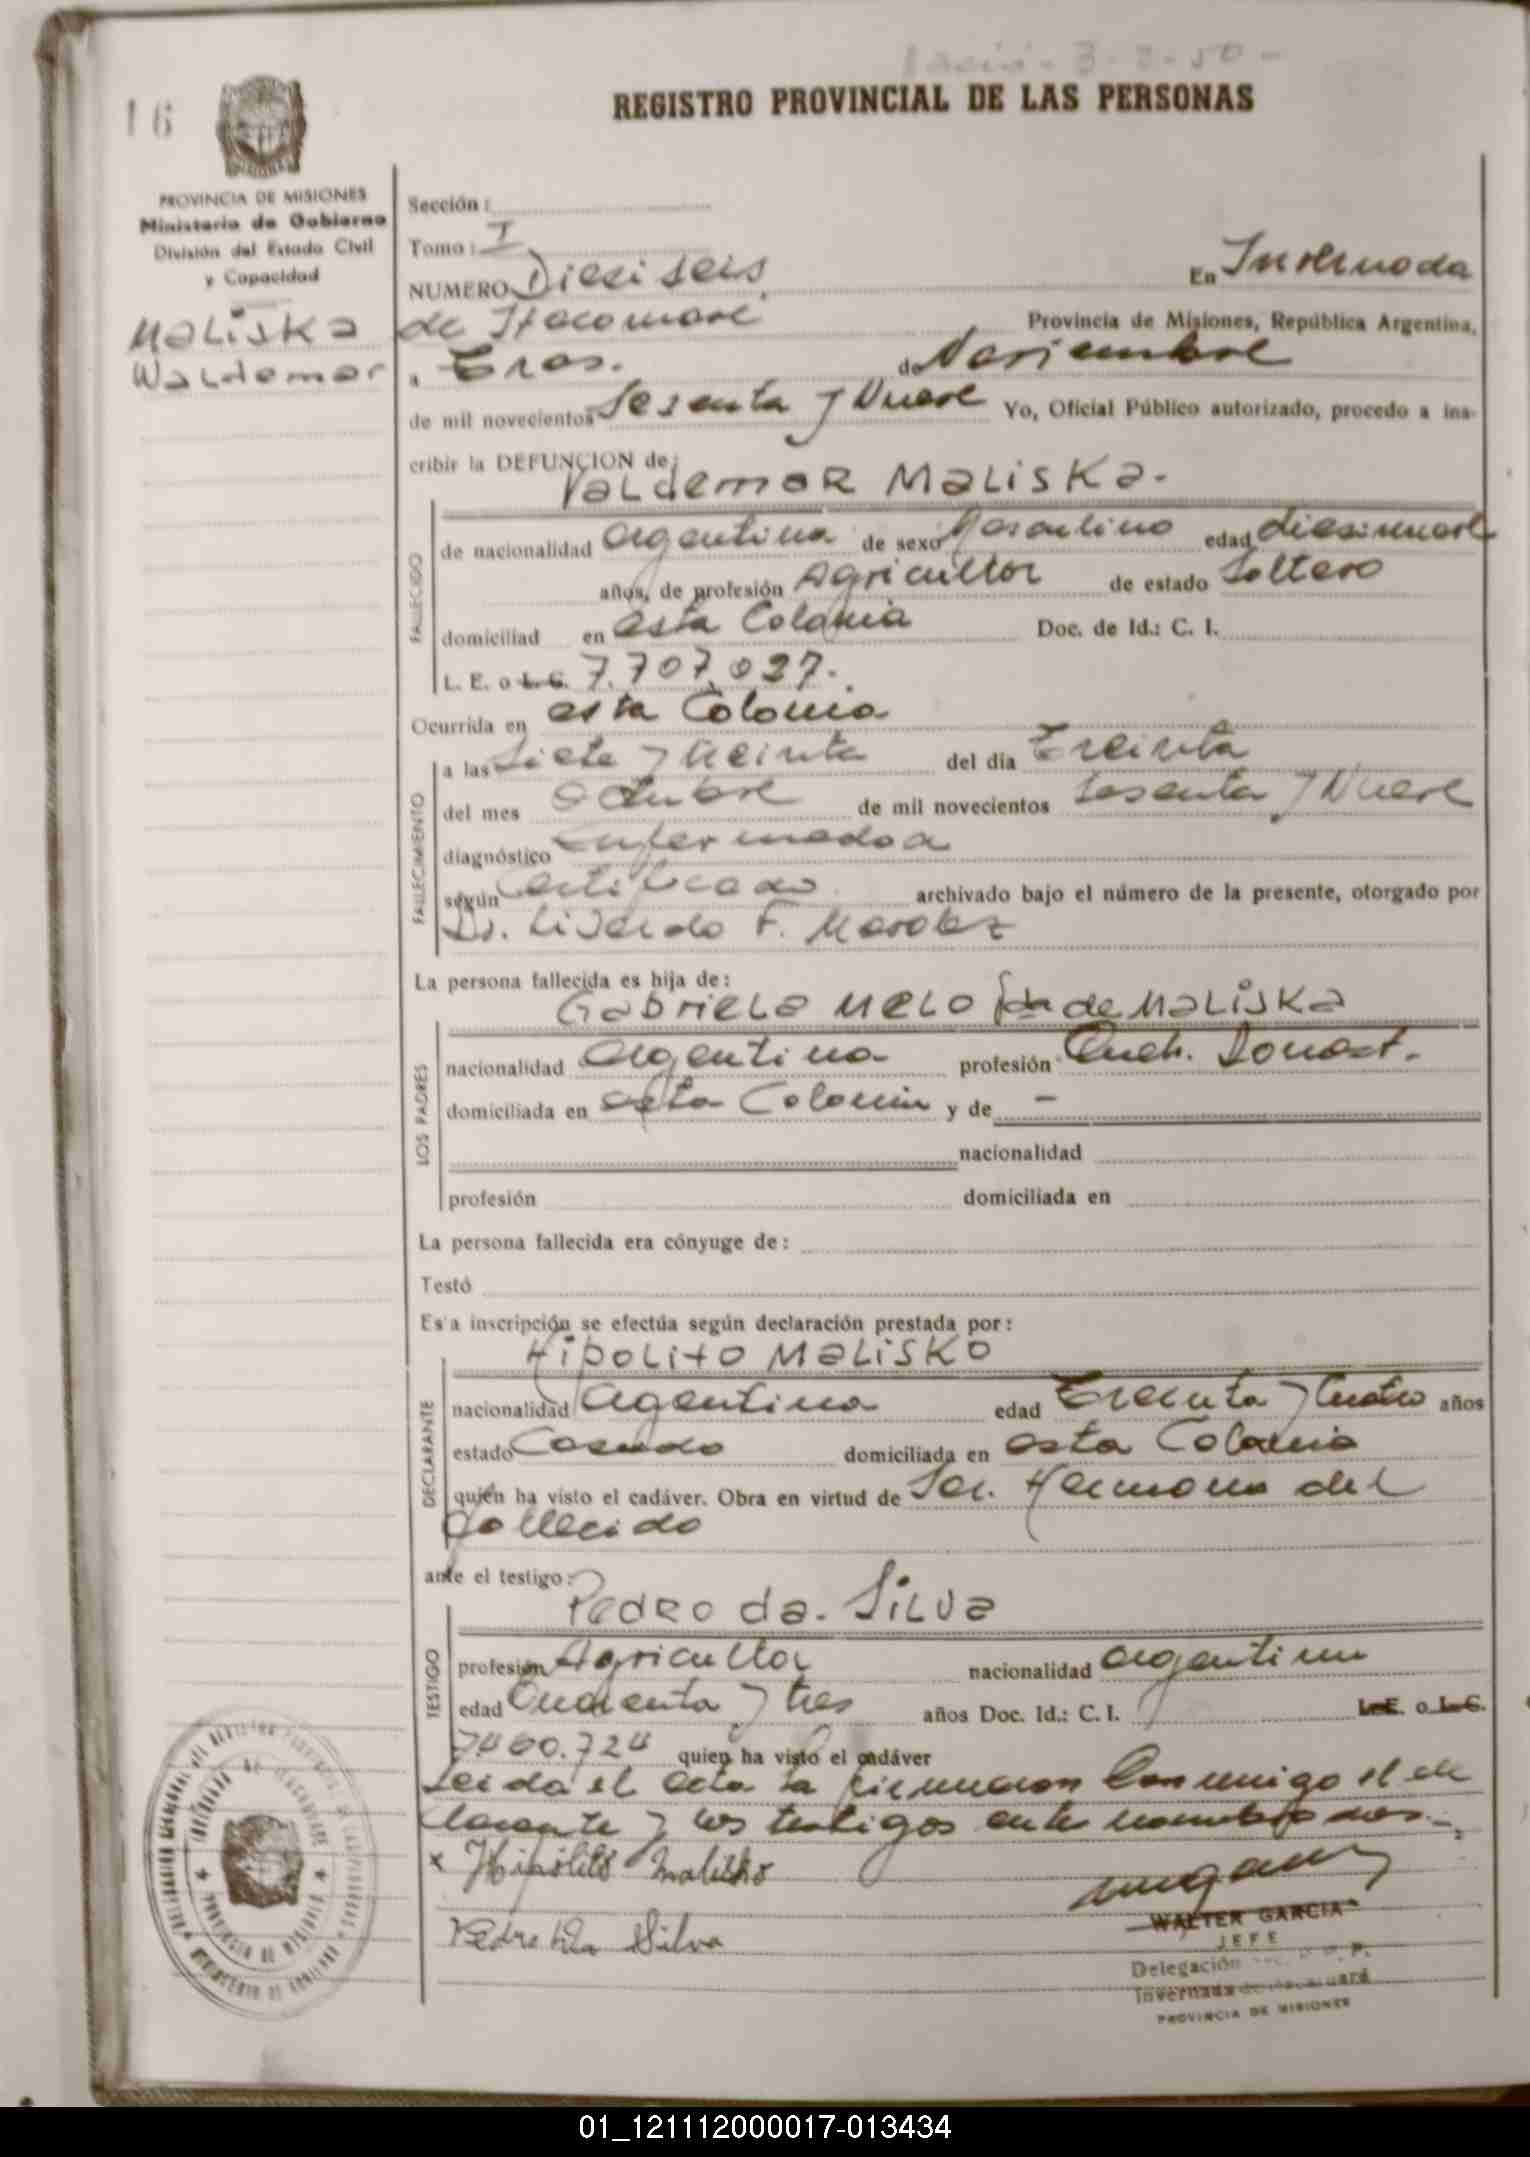 Nació. 3-2-50-
16
REGISTRO PROVINCIAL DE LAS PERSONAS
PROVINCIA DE MISIONES
Ministerio de Gobierno
División del Estado Civil
y Capacidad
Maliska
Waldemar
Sección:
Tomo: I
NUMERO Dieciseis En Invernada
de Itacaruaré Provincia de Misiones, República Argentina,
a Tres. de Noviembre
de mil novecientos Sesenta y Nueve Yo, Oficial Público autorizado, procedo a ins-
cribir la DEFUNCION de:
Valdemar Maliska.
FALLECIDO
de nacionalidad argentina de sexo Masculino edad diecinueve
años, de profesión Agricultor de estado Soltero
domiciliad en esta Colonia Doc. de Id.: C. I.
L. E. o L. C. 7.707.027.
Ocurrida en esta Colonia
FALLECIMIENTO
a las Siete y treinta del día Treinta
del mes Octubre de mil novecientos Sesenta y Nueve
diagnóstico Enfermedad
según Certificado archivado bajo el número de la presente, otorgado por
Dr. F.
La persona fallecida es hija de:
Gabriela Melo de Maliska
LOS PADRES
nacionalidad Argentina profesión Queh. Domest.
domiciliada en esta Colonia y de -
nacionalidad
profesión domiciliada en
La persona fallecida era cónyuge de:
Testó
Esta inscripción se efectúa según declaración prestada por:
Hipolito Malisko
DECLARANTE
nacionalidad Argentina edad Treinta y Cuatro años
estado Casado domiciliada en esta Colonia
quién ha visto el cadáver. Obra en virtud de Ser. Hermano del
fallecido
ante el testigo:
Pedro da. Silva
TESTIGO
profesión Agricultor nacionalidad argentina
edad Cuarenta y tres años Doc. Id.: C. I. L.E. o L.C.
quien ha visto el cadáver
Leida el acta la firmaron Conmigo el de
clarante y los testigos antes nombrados.-
x Hipólito Malisko
Pedro da Silva
WALTER GARCIA
JEFE
Delegación
Invernada de Itacaruaré
PROVINCIA DE MISIONES
01_121112000017-013434